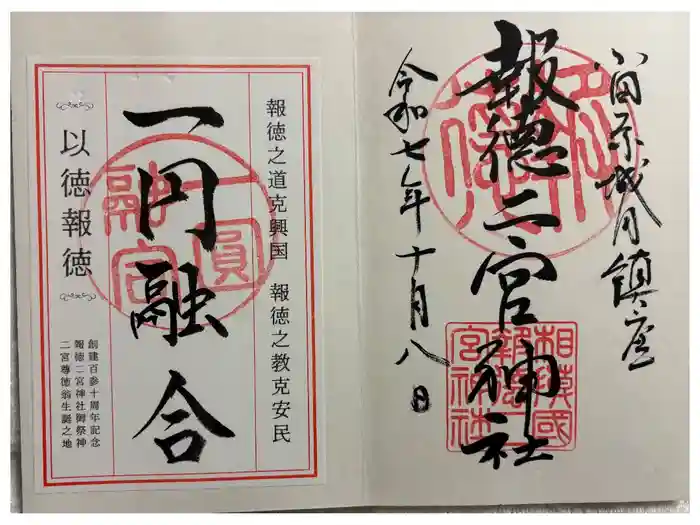 小田原城内鎮座
報徳二宮神社
相模國
報徳二
宮神社
令和七年十月八日
報徳之道克興国 報徳之教克安民
一円融合
一圓
融合
以徳報徳
創建百参十周年記念
報徳二宮神社御祭神
二宮尊徳翁生誕之地